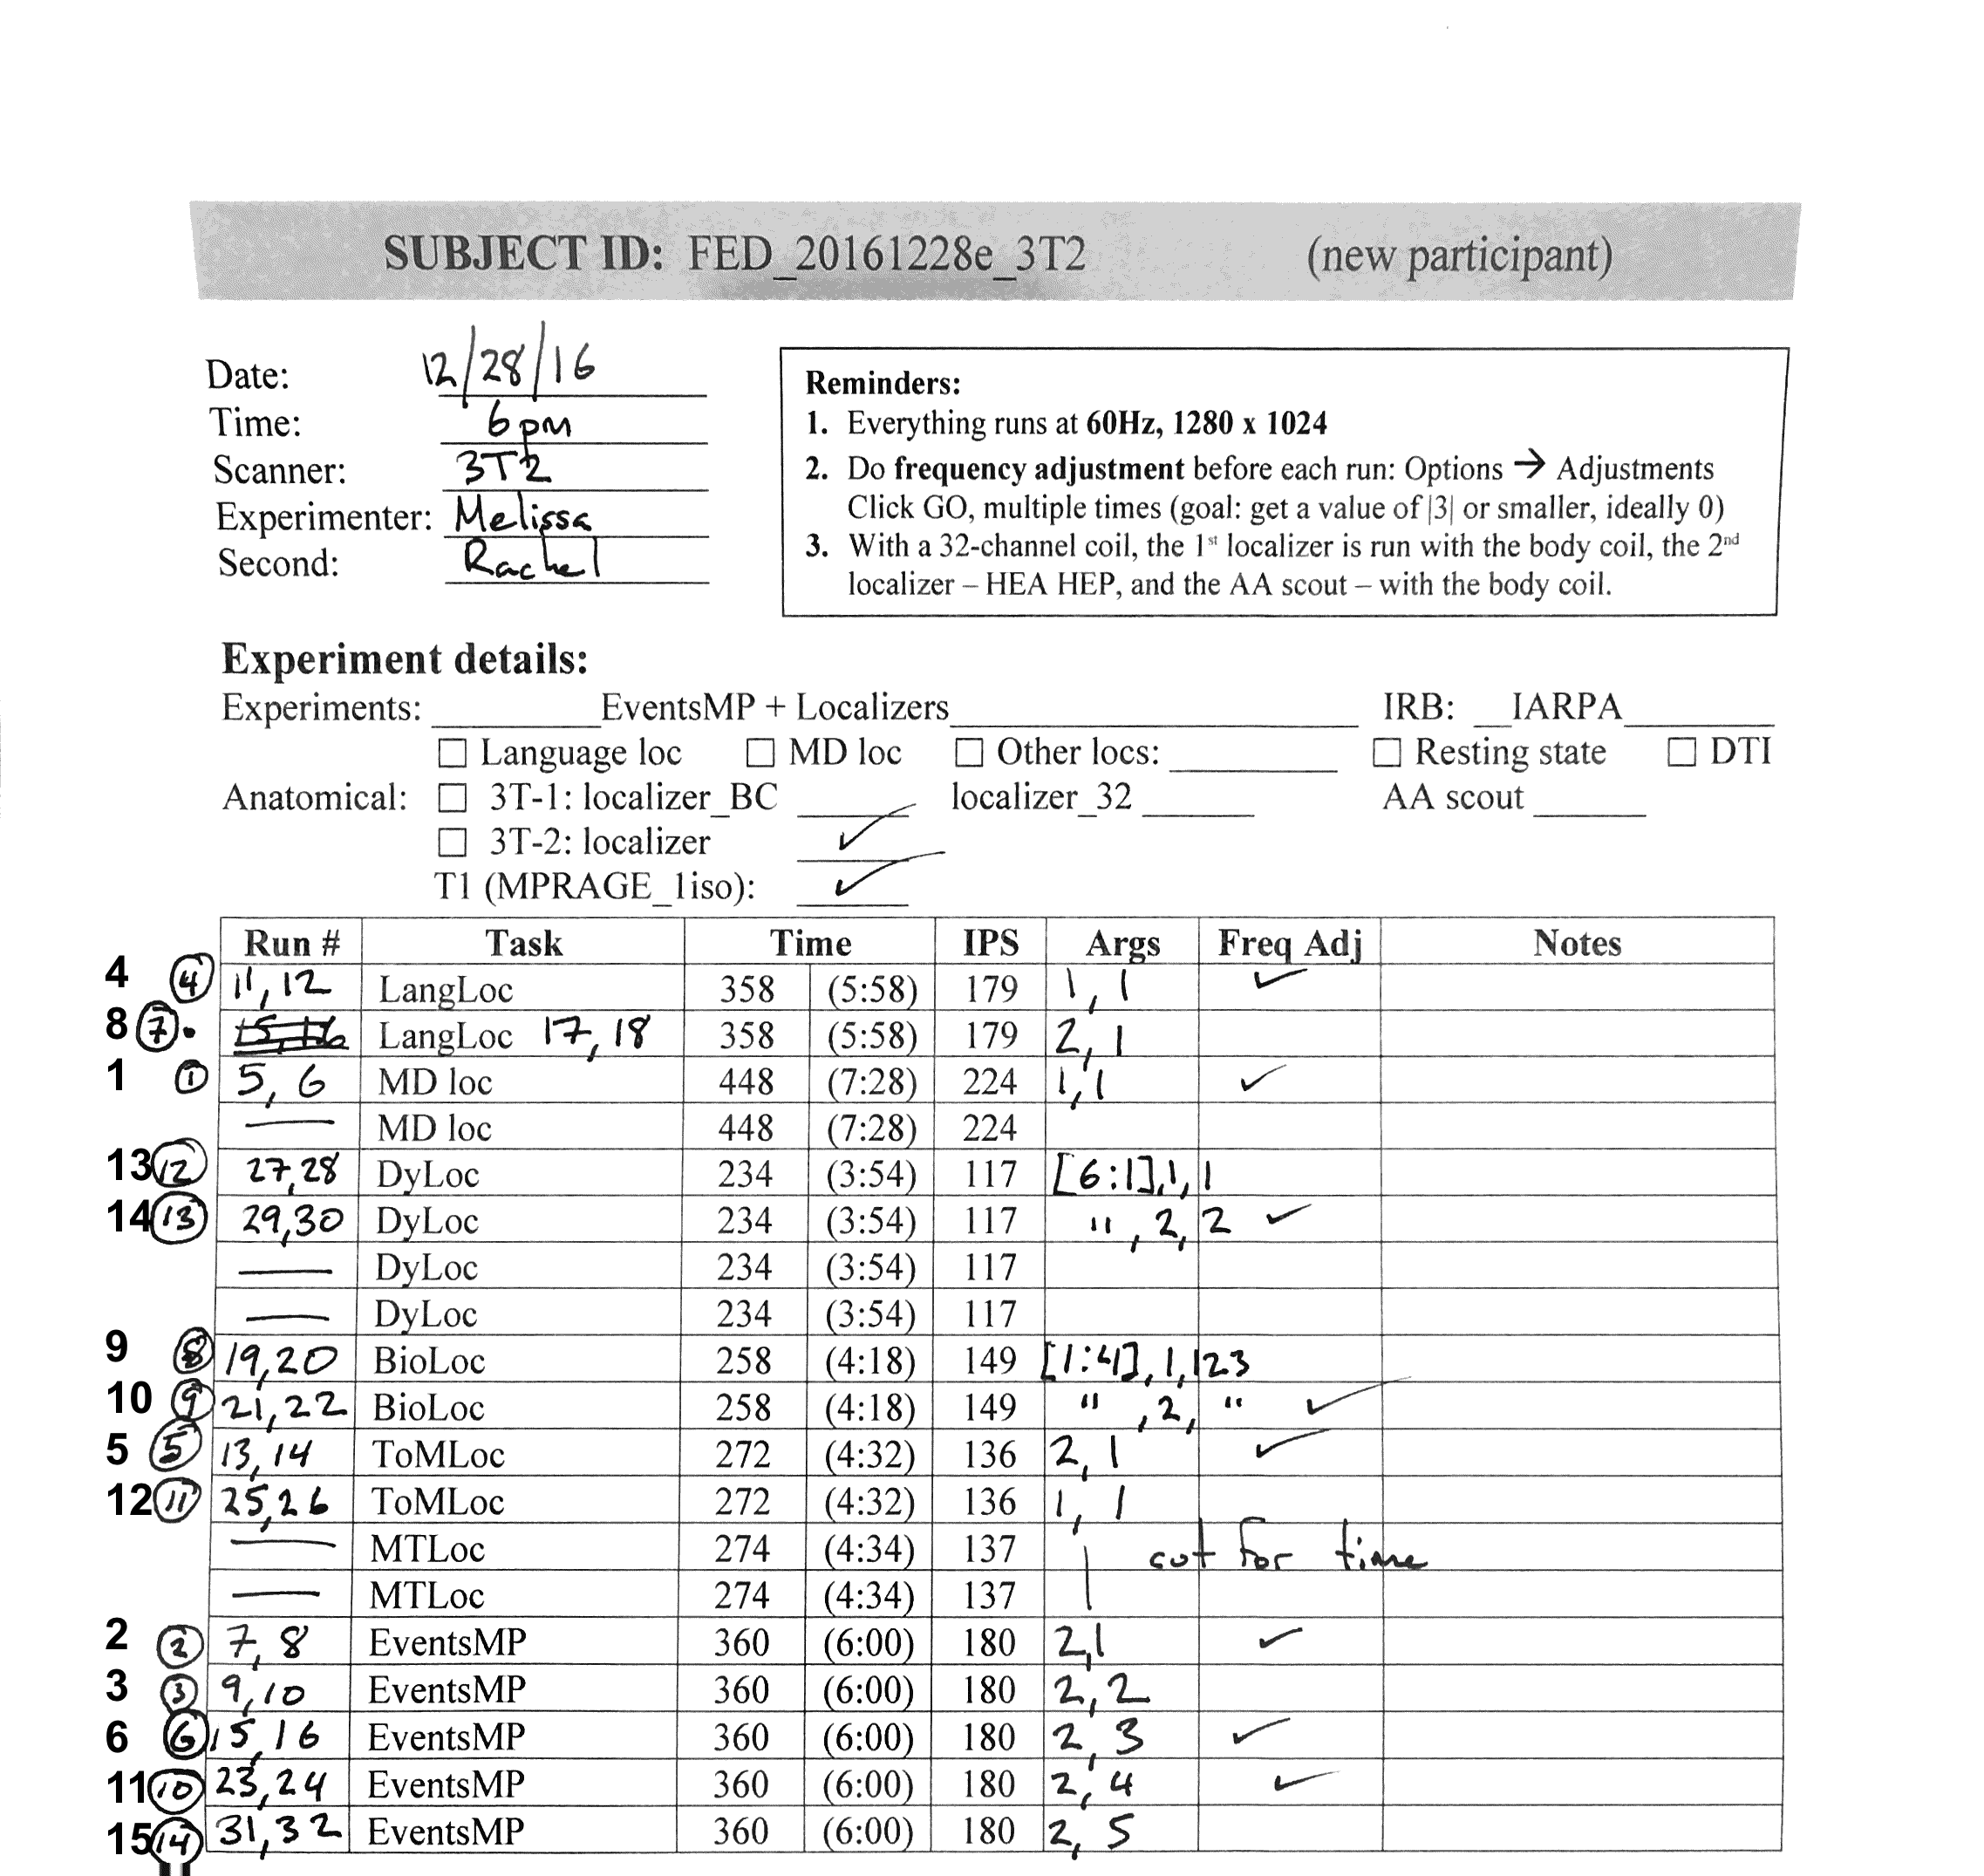 SUBJECT ID: FED_20161228e_3T2 (new participant)
Date: 12/28/16
Time: 6pm
Scanner: 3T2
Experimenter: Melissa
Second: Rachel
Reminders:
1. Everything runs at 60Hz, 1280 x 1024
2. Do frequency adjustment before each run: Options → Adjustments
Click GO, multiple times (goal: get a value of |3| or smaller, ideally 0)
3. With a 32-channel coil, the 1st localizer is run with the body coil, the 2nd
localizer – HEA HEP, and the AA scout – with the body coil.
Experiment details:
Experiments: ________EventsMP + Localizers____________________ IRB: __IARPA________
☐ Language loc ☐ MD loc ☐ Other locs: ________ ☐ Resting state ☐ DTI
Anatomical: ☐ 3T-1: localizer_BC ______ localizer_32 ______ AA scout ______
☐ 3T-2: localizer ✓
T1 (MPRAGE_1iso): ✓
Run # Task Time IPS Args Freq Adj Notes
4 4 11, 12 LangLoc 358 (5:58) 179 1, 1 ✓
8 7. 15,16 LangLoc 17, 18 358 (5:58) 179 2, 1
1 1 5, 6 MD loc 448 (7:28) 224 1,1 ✓
— MD loc 448 (7:28) 224
13 12 27,28 DyLoc 234 (3:54) 117 [6:1],1,1
14 13 29,30 DyLoc 234 (3:54) 117 " , 2, 2 ✓
— DyLoc 234 (3:54) 117
— DyLoc 234 (3:54) 117
9 8 19,20 BioLoc 258 (4:18) 149 [1:4],1,123
10 9 21,22 BioLoc 258 (4:18) 149 " ,2, " ✓
5 5 13, 14 ToMLoc 272 (4:32) 136 2, 1 ✓
12 11 25,26 ToMLoc 272 (4:32) 136 1, 1
— MTLoc 274 (4:34) 137 cut for time
— MTLoc 274 (4:34) 137
2 2 7, 8 EventsMP 360 (6:00) 180 2,1 ✓
3 3 9,10 EventsMP 360 (6:00) 180 2, 2
6 6 15, 16 EventsMP 360 (6:00) 180 2, 3 ✓
11 10 23,24 EventsMP 360 (6:00) 180 2, 4 ✓
15 14 31,32 EventsMP 360 (6:00) 180 2, 5